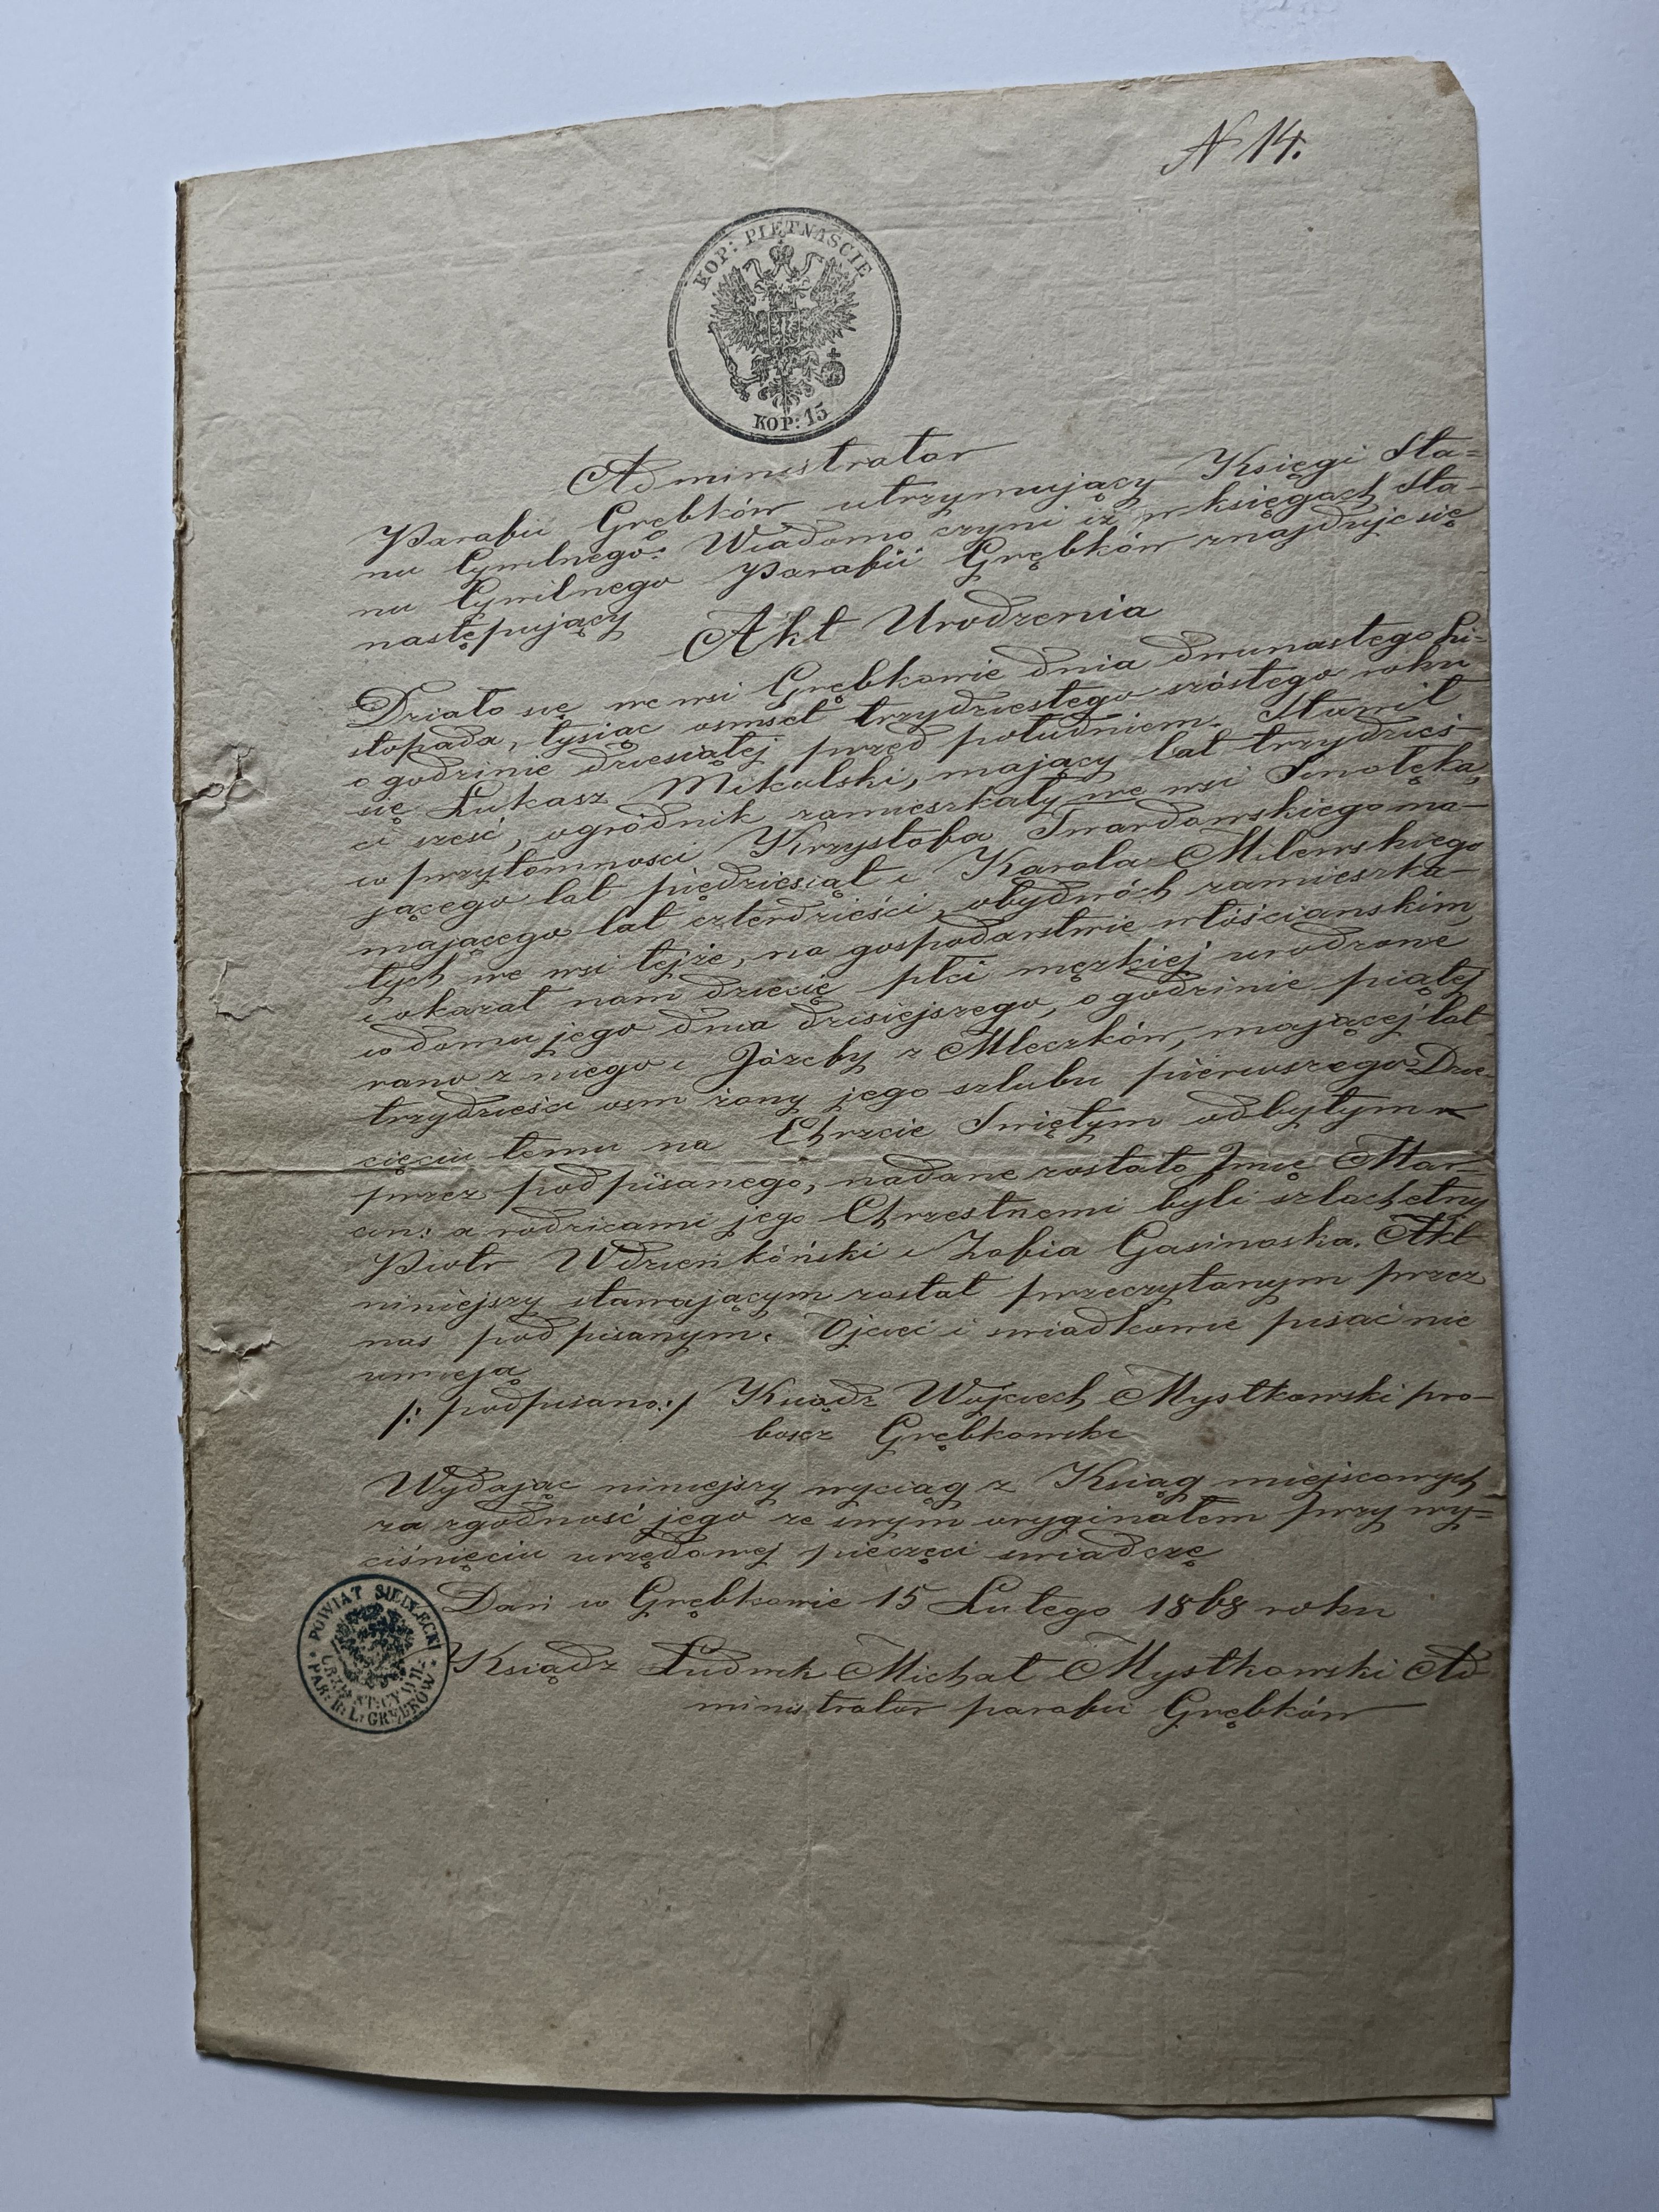 N 14.
KOP: PIĘTNAŚCIE
KOP: 15
Administrator
Parafii Grębków utrzymujący Księgi Sta=
nu Cywilnego: Wiadomo czyni iż w księgach Sta-
nu Cywilnego Parafii Grębków znajduje się
następujący
Akt Urodzenia
Działo się we wsi Grębkowie dnia dwunastego Li-
stopada, tysiąc ośmset trzydziestego szóstego roku
o godzinie dziesiątej przed południem. Stawił
się Łukasz Mikulski, mający lat trzydzieś-
ci sześć, ogrodnik zamieszkały we wsi Smolęka,
w przytomnosci Krzysztofa Twardowskiego ma-
jącego lat pięddziesiąt i Karola Milewskiego
mającego lat czterdzieści, obydwóch zamieszka-
łych we wsi tejże, na gospodarstwie włościanskim
i okazał nam dziecię płci męzkiej urodzone
w domu jego dnia dzisiejszego, o godzinie piątej
rano z niego i Józefy z Mleczków, mającej lat
trzydzieści osm żony jego szlubu pierwszego. Dzie-
cięciu temu na Chrzcie Swiętym odbytym w
przez podpisanego, nadane zostało Imię Mar-
cin: a rodzicami jego Chrzestnemi byli szlachetny
Piotr i Zofia Akt
niniejszy stawającym został przeczytanym przez
nas podpisanym. Ojciec i swiadkowie pisać nie
umieją
/: podpisano:/ Ksiądz Wojciech Mystkowski pro-
boszcz Grębkowski
Wydając niniejszy wyciąg z Ksiąg miejscowych
za zgodność jego ze swym oryginałem przy wy=
ciśnięciu urzędowej pieczęci swiadczę
Dań w Grębkowie 15 Lutego 1868 roku
Ksiądz Ludwik Michał Mystkowski Ad-
ministrator parafii Grębków
POWIAT SIEDLECKI
PAR: R: L: GRĘBKÓW